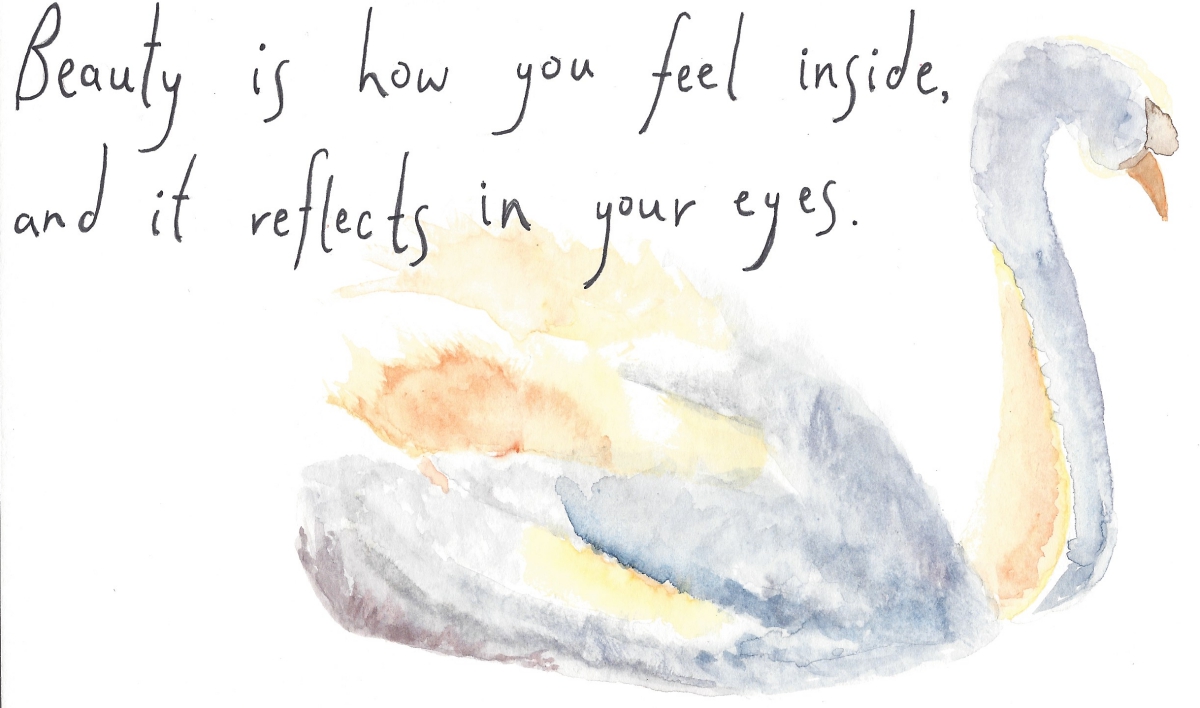 Beauty is how you feel inside,
and it reflects in your eyes.